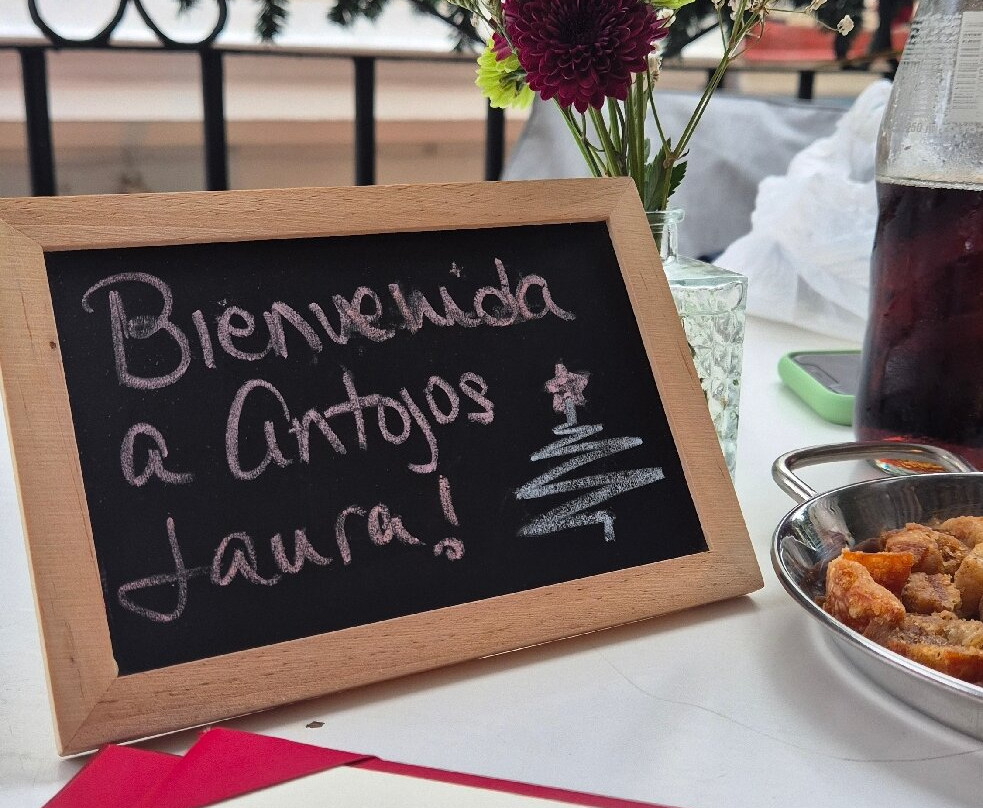 Bienvenida
a Antojos
Laura!